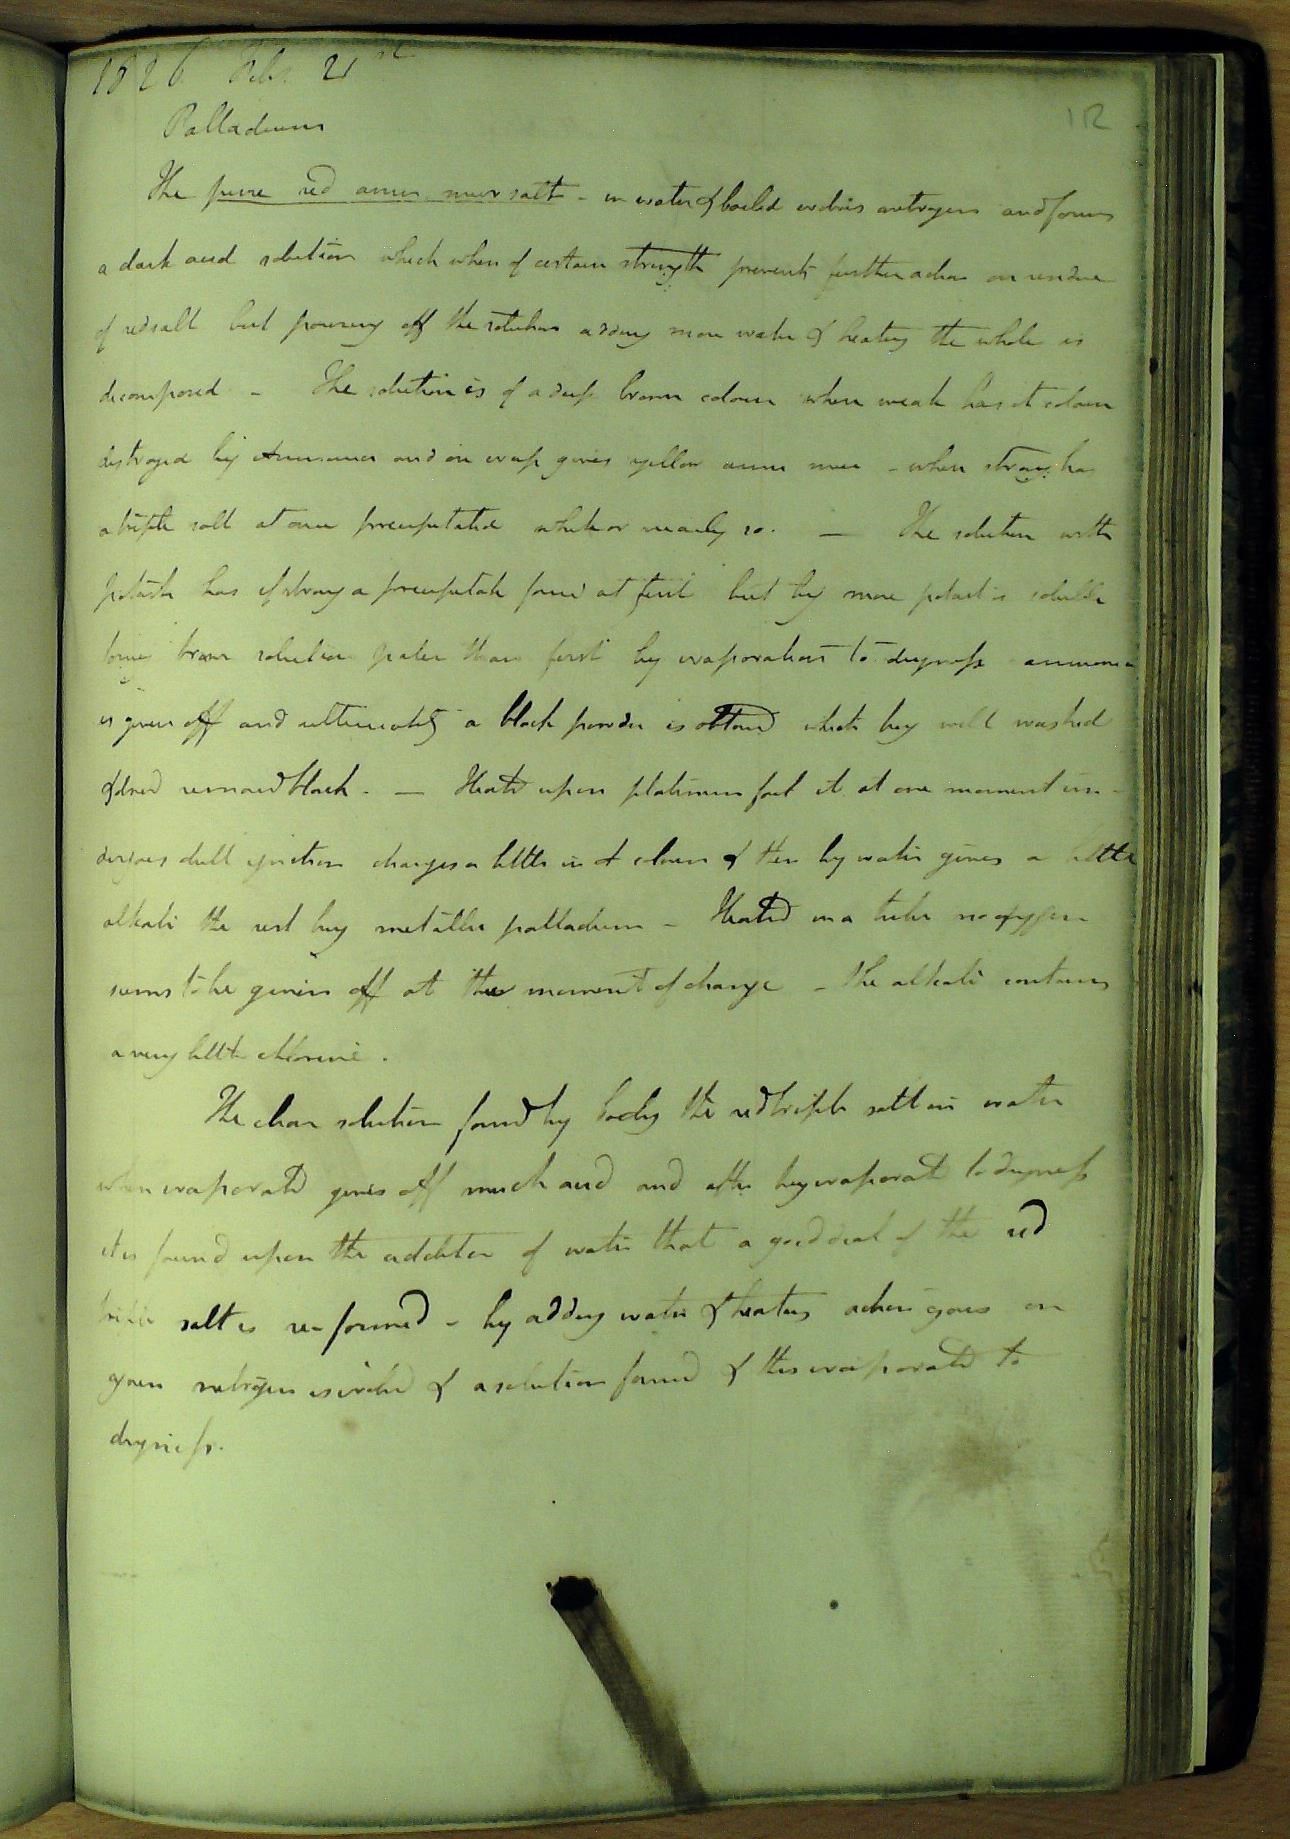 1826 Feby 21st
112
Palladium
The pure red amm. mur salt - in water & boiled evolves nitrogen and forms
a dark acid solution which when of certain strength prevents further action on residue
of red salt but pouring off the solution adding more water & heating the whole is
decomposed - The solution is of a deep brown colour when weak has it colour
destroyed by Ammonia and on evap gives yellow amm mur - when strong has
a triple salt at once precipitated white or nearly so. - The solution with
potash has if strong a precipitate formd at first but by more potash is soluble
brown solution paler than first by evaporation to dryness ammonia
is given off and ultimately a black powder is obtaind which by well washed
& dried remained black. - Heatd upon platinum foil it at one moment un-
dergoes dull ignition changes a little in it colour & then by water gives a little
alkali the rest by metallic palladium - Heated in a tube no oxygen
seems to be given off at the moment of change - the alkali contains
a very little chlorine.
The clear solution formd by boilg the red triple salt in water
when evaporated gives off much acid and after by evaporatd to dryness
it is found upon the addition of water that a good deal of the red
triple salt is re-formed - by adding water & heating action goes on
again nitrogen is evolvd & a solution formd & this evaporated to
dryness.